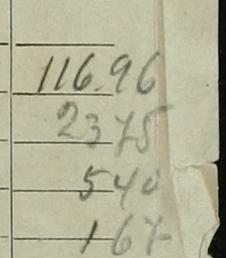 116.96
2375
540
167